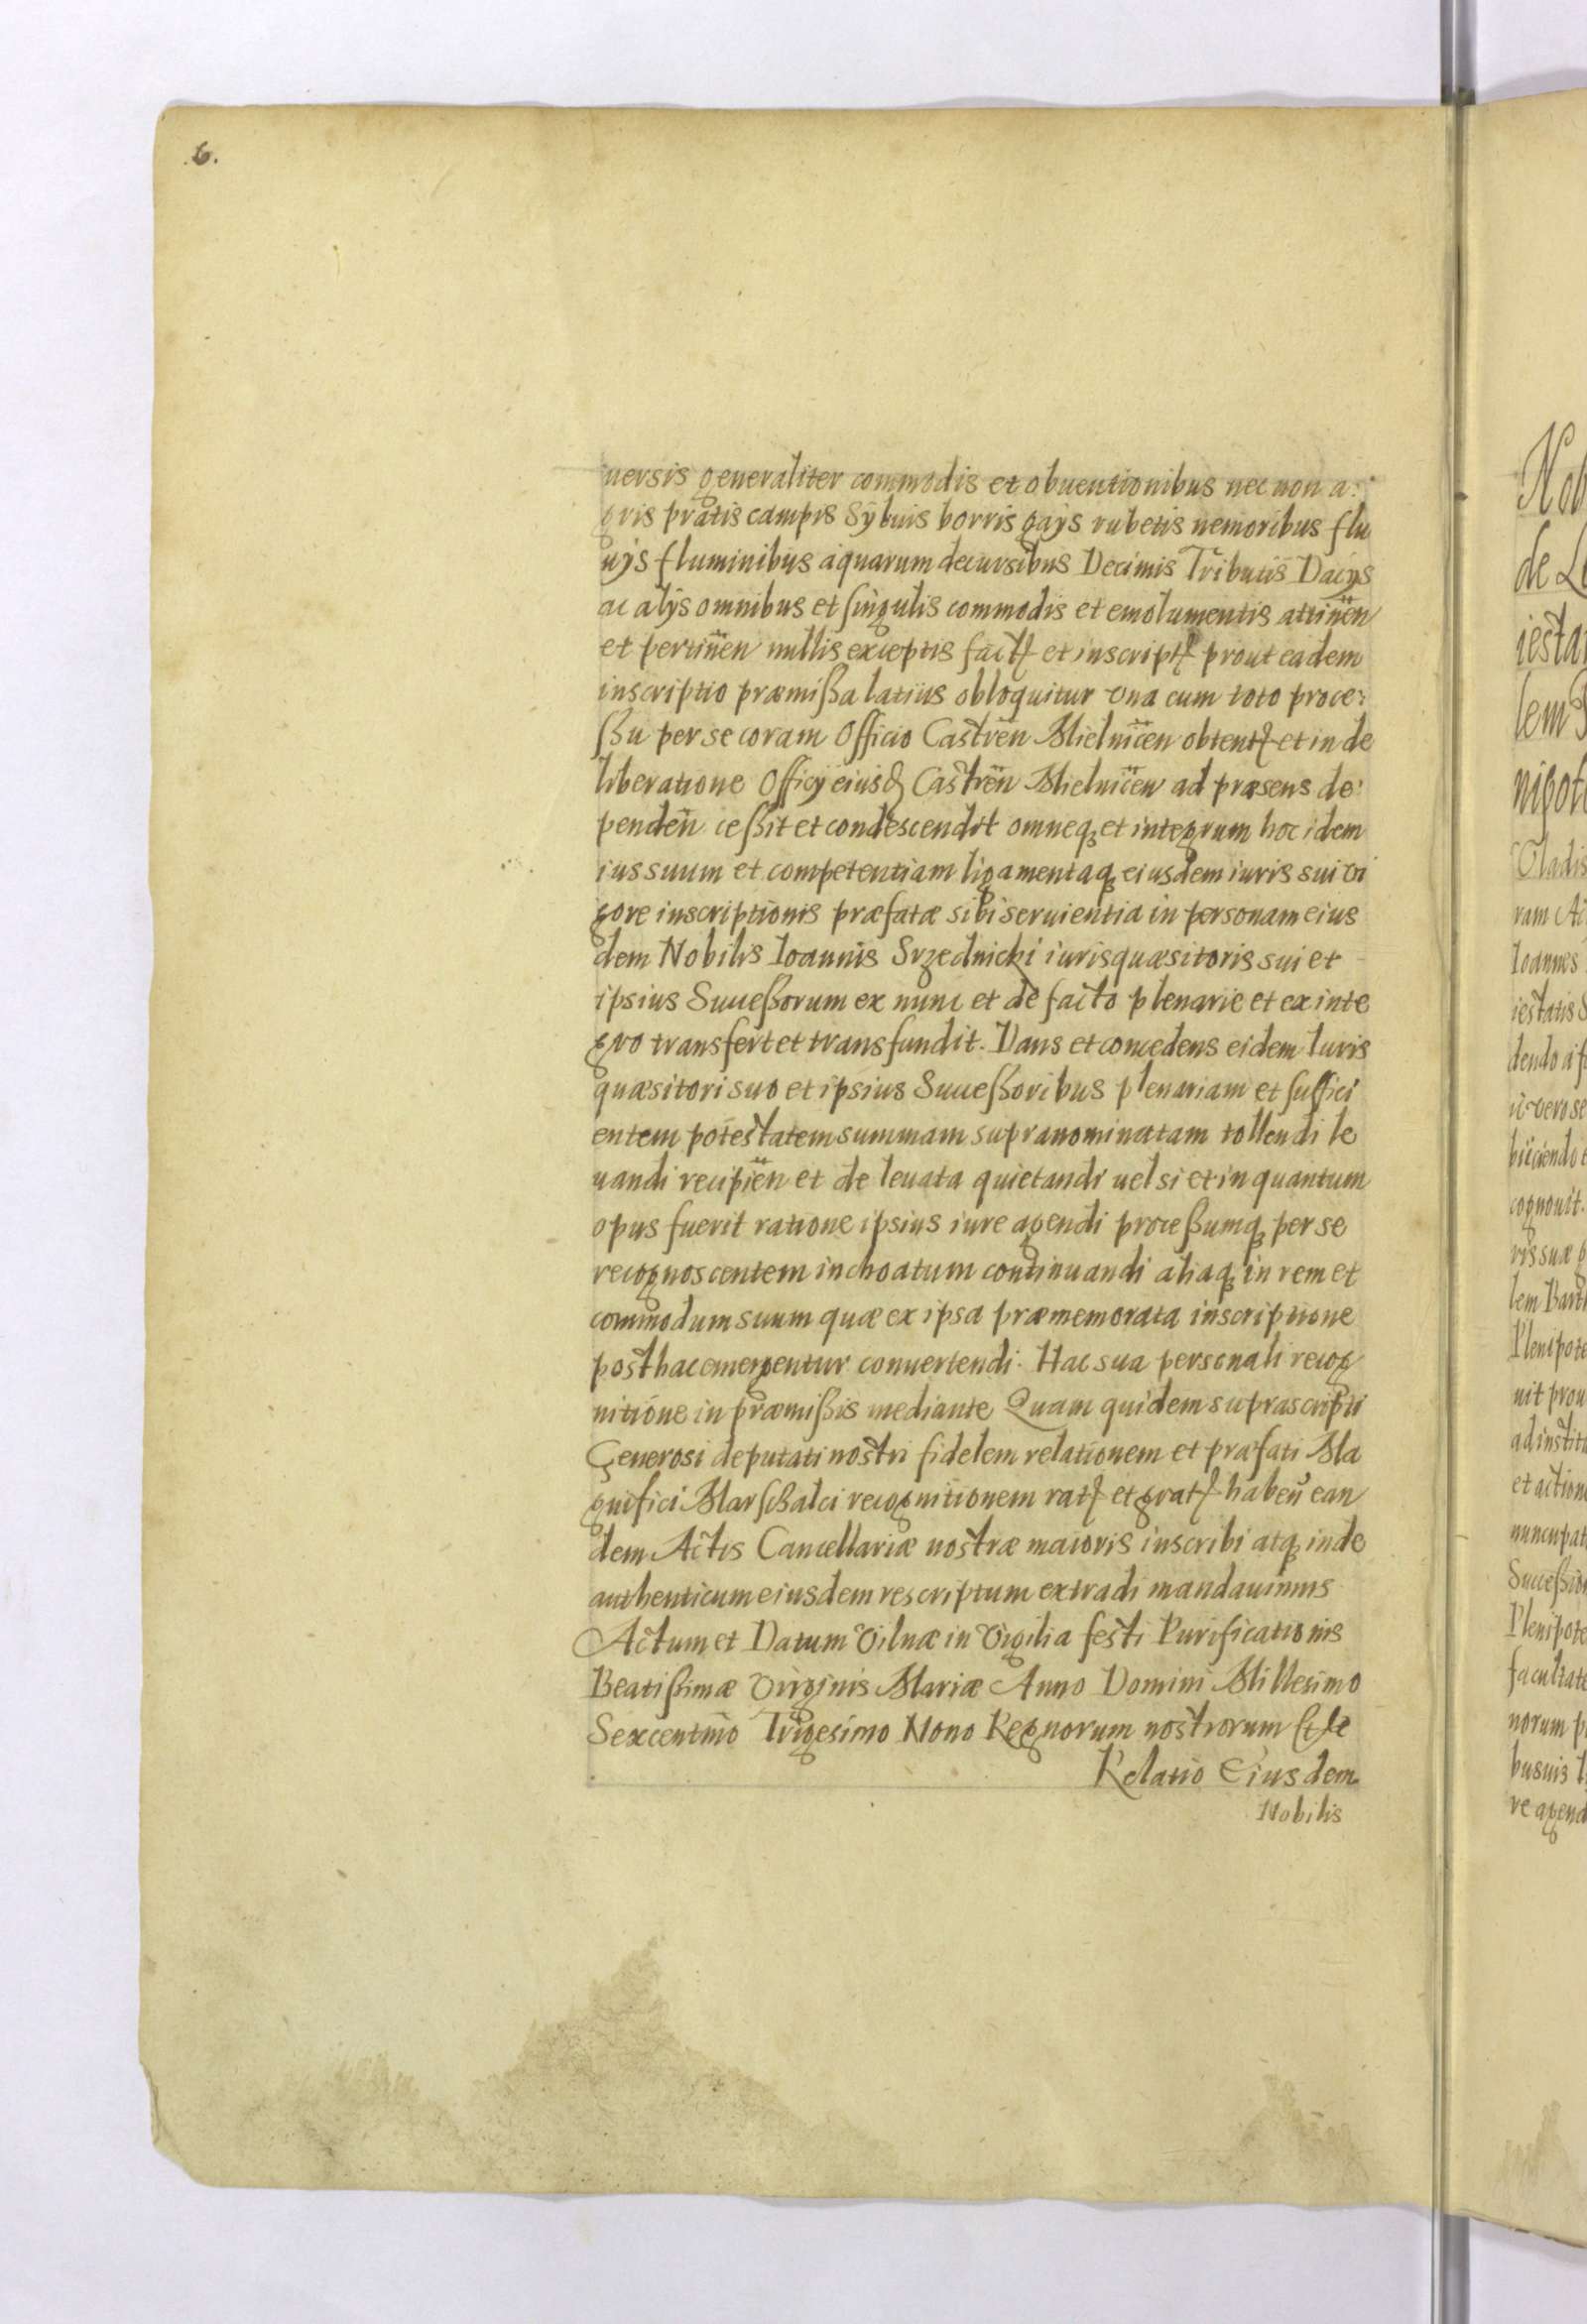 6.
uersis generaliter commodis et obuentionibus nec non a:
gris pratis campis Sÿluis borris gaÿs rubetis nemoribus flu
uÿs fluminibus aquarum decursibus Decimis Tributis Dacÿs
ac alÿs omnibus et singulis commodis et emolumentis attinen̈
et pertinen̈ nullis exceptis fact et inscript prout eadem
inscriptio præmißa latius obloquitur vna cum toto proce:
ßu per se coram Officio Castren̈ Mielnicen̈ obtent et in de
liberatione Officÿ eiusd Castren̈ Mielnicen̈ ad præsens de:
penden̈ ceßit et condescendit omneq et integrum hoc idem
ius suum et competentiam ligamentaq eiusdem iuris sui vi
gore inscriptionis præfatæ sibi seruientia in personam eius
dem Nobilis Ioannis Srzednicki iurisquæsitoris sui et
ipsius Succeßorum ex nunc et de facto plenarie et ex inte
gro transfert et transfundit. Dans et concedens eidem Iuris
quæsitori suo et ipsius Succeßoribus plenariam et suffici
entem potestatem summam supranominatam tollendi le
uandi recipien̈ et de leuata quietandi uel si et in quantum
opus fuerit ratione ipsius iure agendi proceßumq per se
recognoscentem inchoatum continuandi aliaq in rem et
commodum suum quæ ex ipsa præmemorata inscriptione
posthac emergentur conuertendi. Hac sua personali recog
nitione in præmißis mediante Quam quidem suprascripti
Generosi deputati nostri fidelem relationem et præfati Ma
gnifici Marschalci recognitionem rat et grat haben̈ ean
dem Actis Cancellariæ nostræ maioris inscribi atq inde
authenticum eiusdem rescriptum extradi mandauimus
Actum et Datum Vilnæ in Vigilia festi Purificationis
Beatißimæ Virginis Mariæ Anno Domini Millesimo
Sexcentmo Trigesimo Nono Regnorum nostrorum Etc
Relatio Eiusdem
Nobilis
Nob
de
iesta
lem
nipot
Vladis
ram Ac
Ioannes
iestatis S
dendo
vero se
cognouit.
ris suæ
lem Bart
Plenipote
uit prou
ad instit
et action
nuncupat
Succeßio
Plenipote
facultate
norum p
busuis
re agend